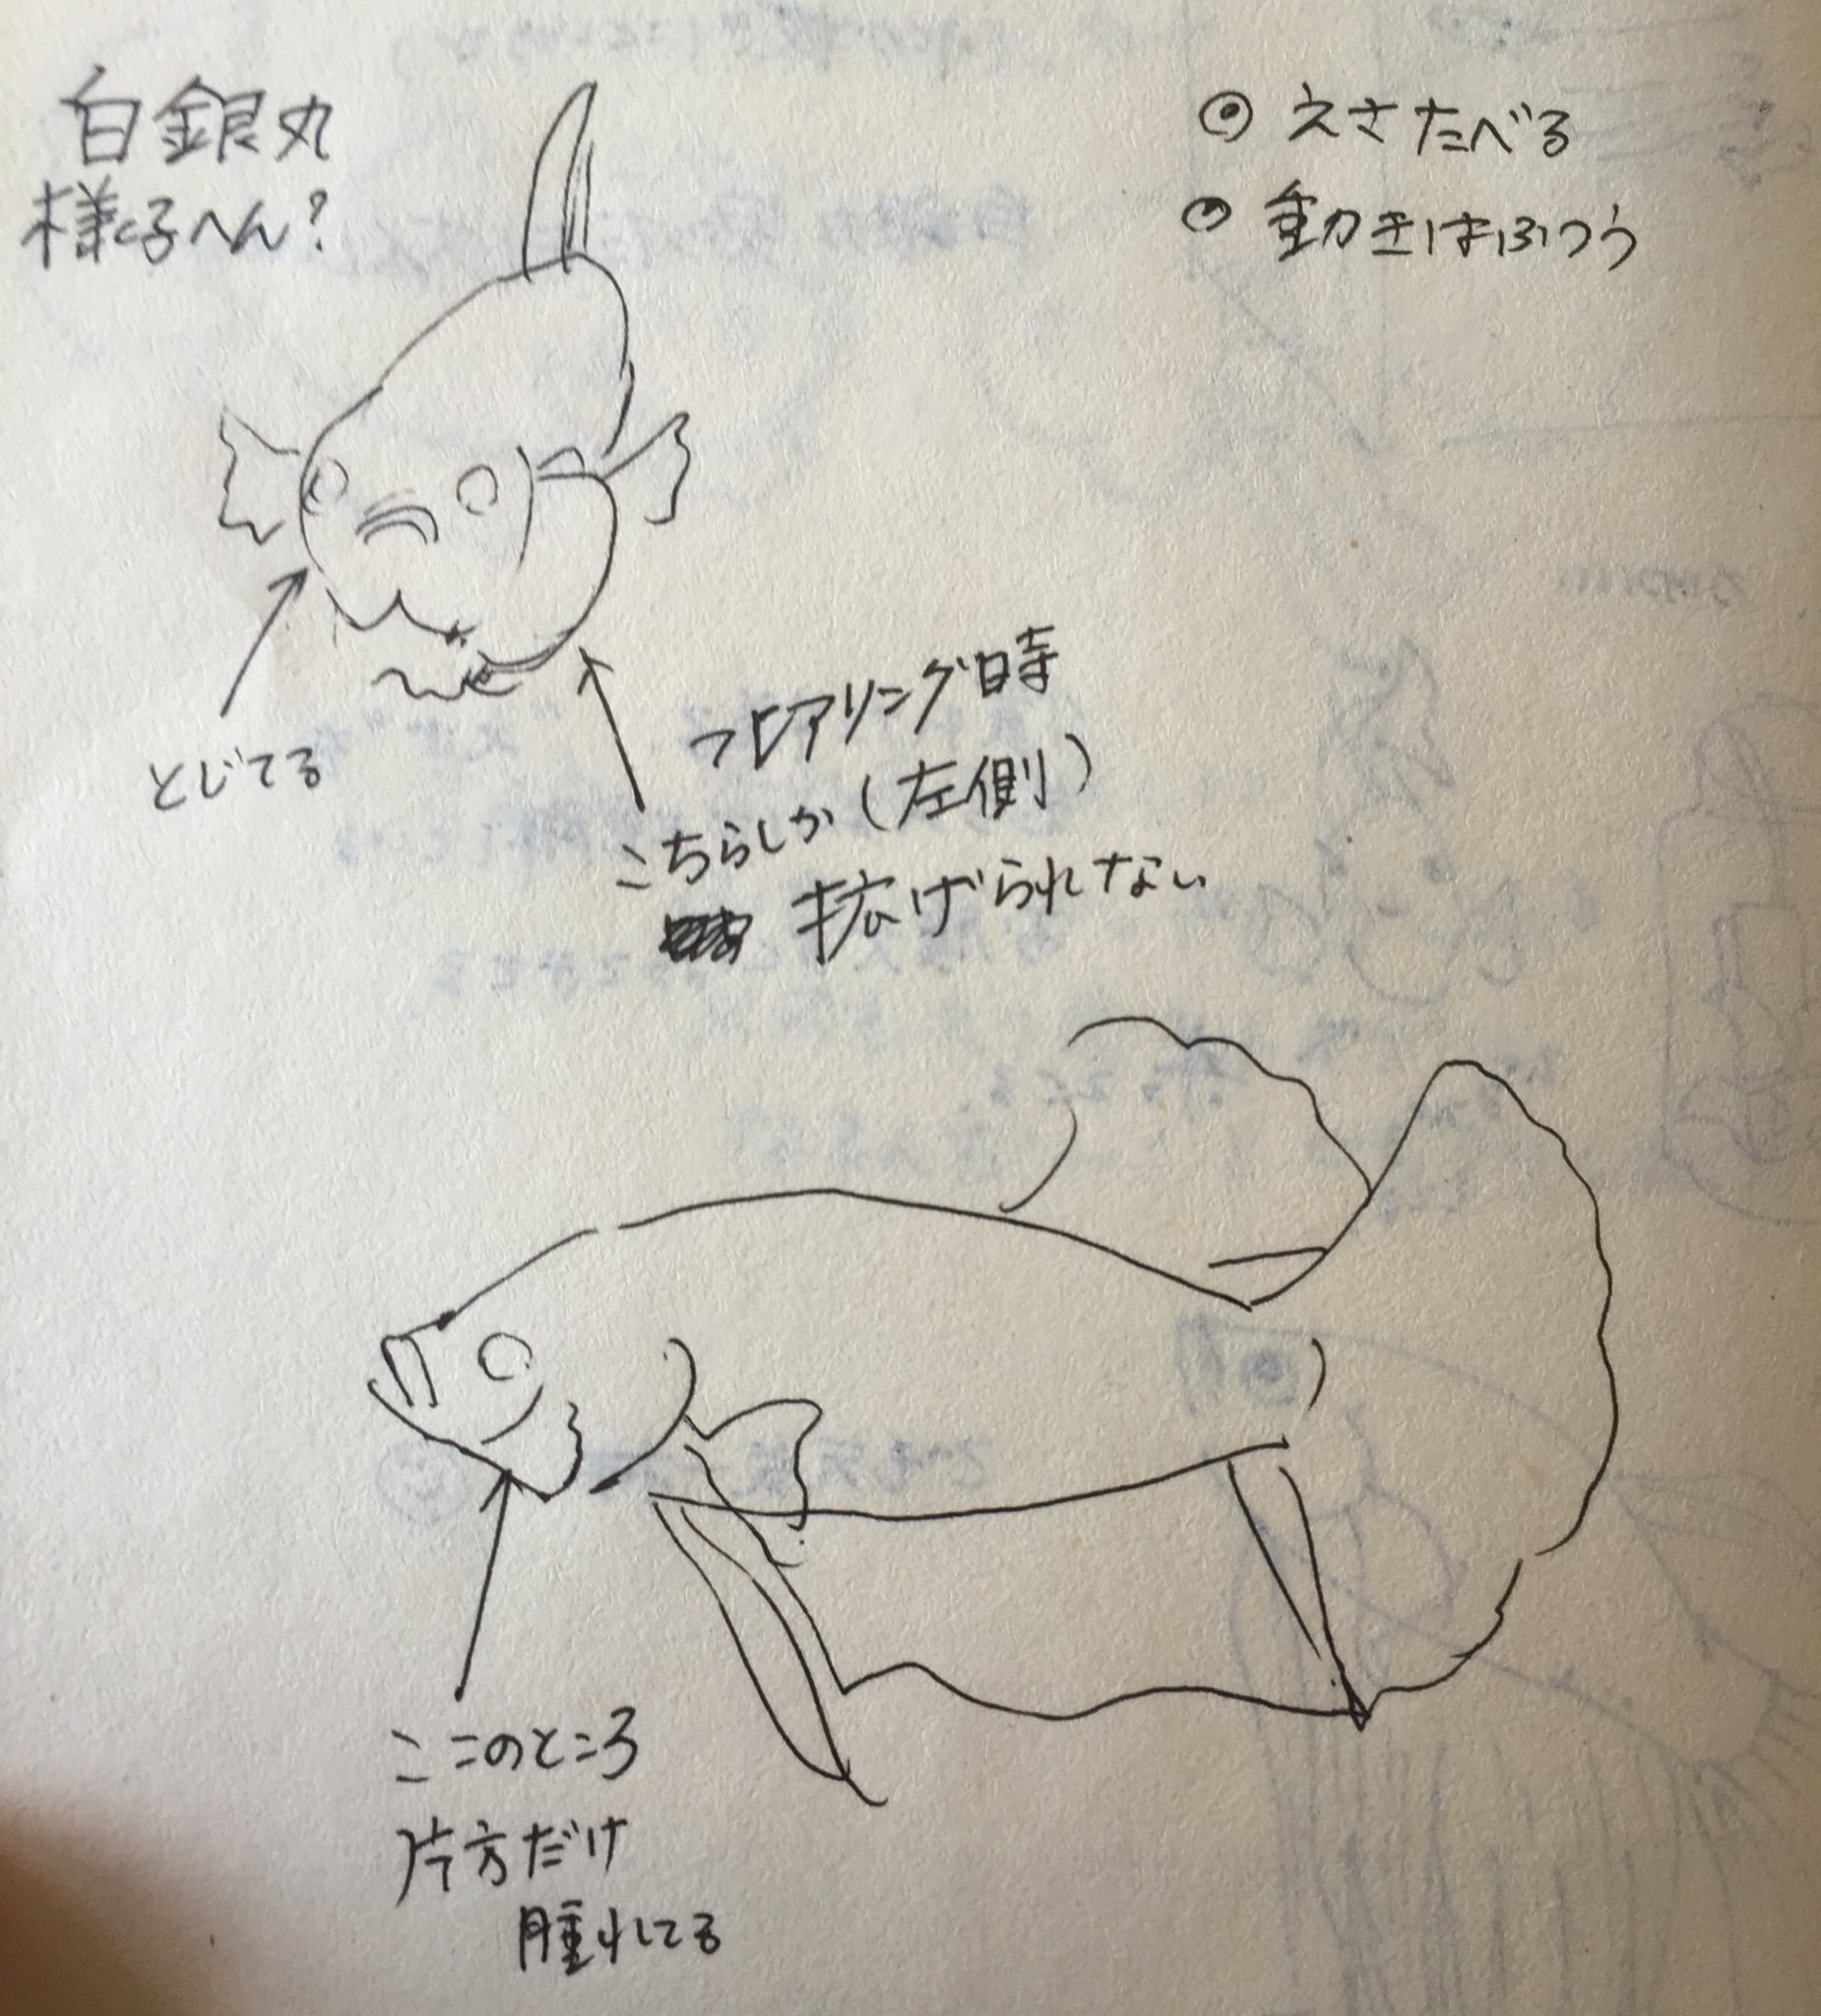 白銀丸
様子へん?
えさたべる
動きはふつう
とじてる
フレアリング時
こちらしか(左側)
拡げられない
ここのところ
片方だけ
腫れてる